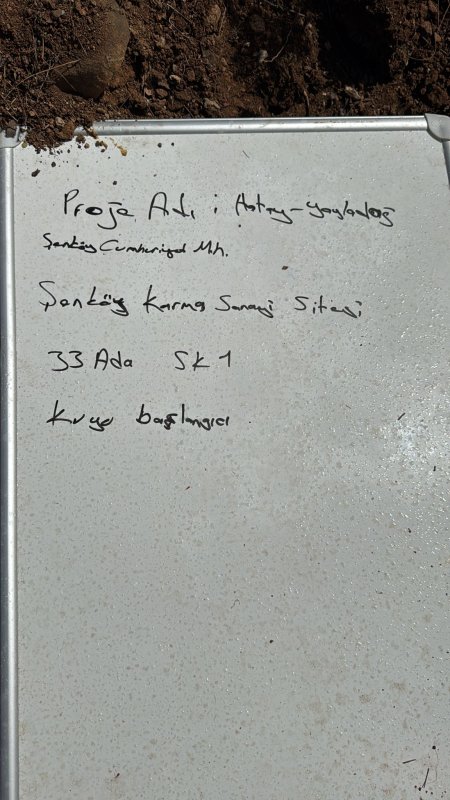 Proje Adı : Hatay-Yayladağ
Şenköy Cumhuriyet Mh.
Şenköy Karma Sanayi Sitesi
33 Ada SK 1
Kuyu başlangıcı